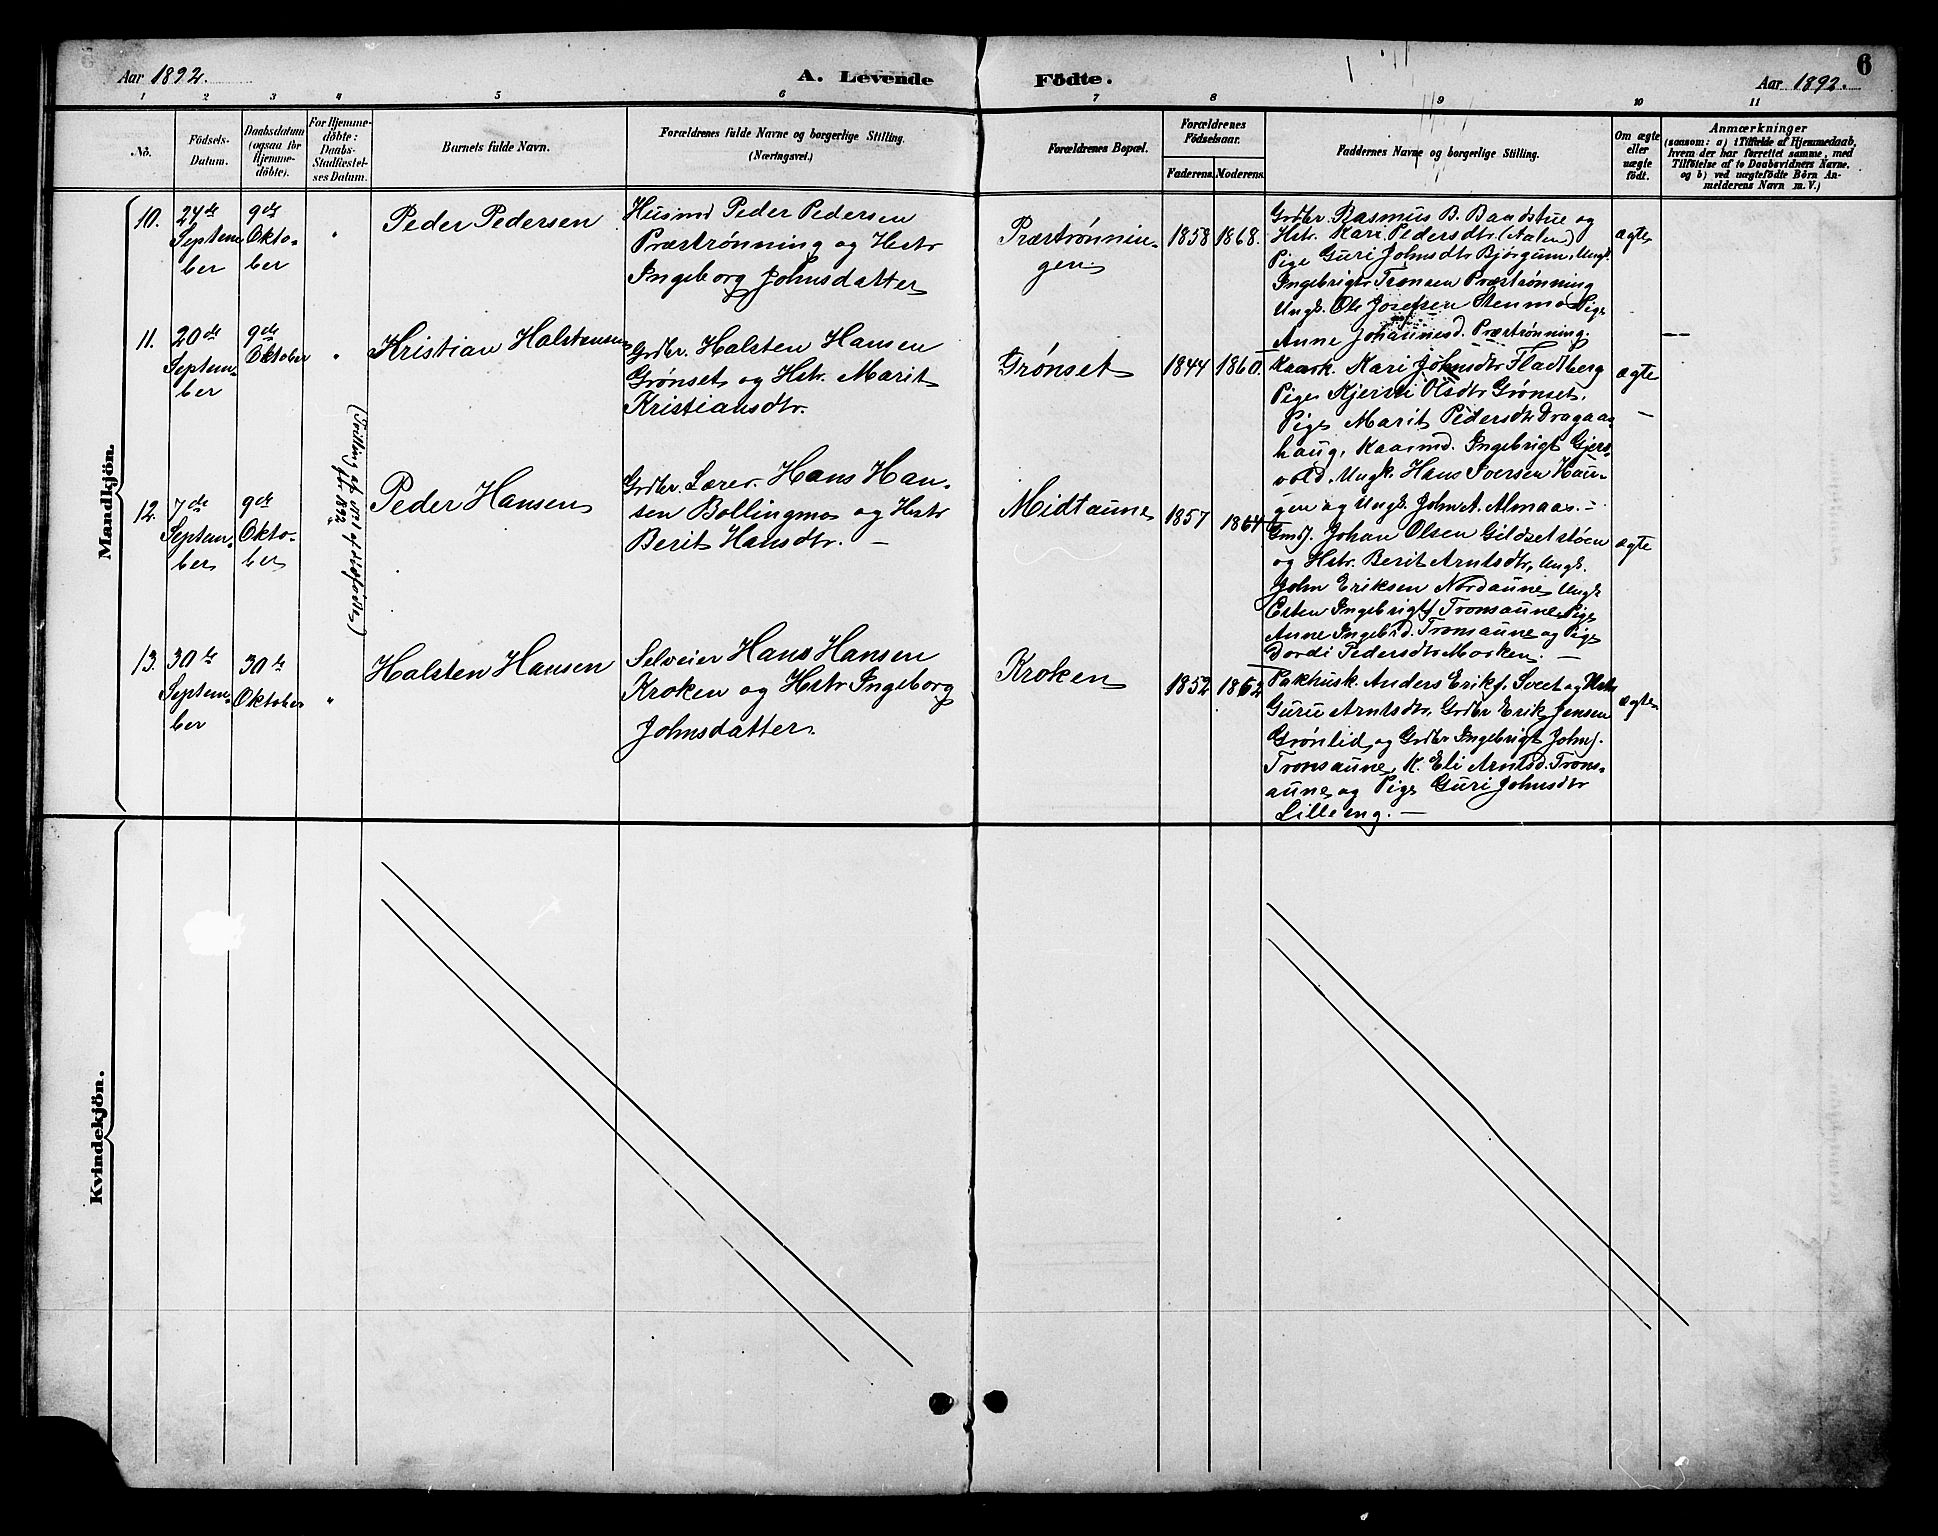 Aar 1892.
A. Levende
Födte.
Aar 1892.
6
1 2 3 4 5 6 7 8 9 10 11
No.
Födsels-
Datum.
Daabsdatum
(ogsaa for
Hjemme-
döbte).
For Hjemme-
döbte:
Daabs-
Stadfæstel-
ses Datum.
Barnets fulde Navn.
Forældrenes fulde Navne og borgerlige Stilling.
(Næringsvei.)
Forældrenes Bopæl.
Forældrenes
Födselsaar.
Faderens.
Moderens.
Faddernes Navne og borgerlige Stilling.
Om ægte
eller
uægte
födt.
Anmærkninger
(saasom: a) i Tilfælde af Hjemmedaab,
hvem der har forrettet samme, med
Tilföielse af to Daabsvidners Navne.
og b) ved uægtefödte Börn An-
melderens Navn m. V.)
Mandkjön.
10.
24de
Septem
ber
9de
Okto-
ber
"
Peder Pedersen
Husmd Peder Pedersen
Præstrønning og Hstr
Ingeborg Johnsdatter
Præstrønnin-
gen
1858
1868.
Grdbr. Rasmus B. Baadstue og
Hstr. Kari Pedersdtr. (Aalen)
Pige Guri Johnsdtr Bjørgum, Ungk.
Ingebrigt Tronsen Præstrønning
Ungk. Ole Josefsen Stenmo Pige
Anne Johannesd. Præstrønning.
ægte
11.
20de
Septem-
ber
9de
Oktober
"
Kristian Halstensen
Grdbr. Halsten Hansen
Grønset og Hstr. Marit
Kristiansdtr.
Grønset
1844
1860.
Kaark. Kari Johnsdtr Fladberg
Pige Kjersti Olsdtr Grønset.
Pige Marit Pedersdtr Dragaas
haug, Kaarmd. Ingebrigt Gjers-
vold. Ungk. Hans Iversen Hau-
gen og Ungk. John A. Almaas. -
ægte
—
12.
7de
Septem-
ber
9de
Okto-
ber
Peder Hansen
Grdbr. Lærer Hans Han-
sen Bollingmo og Hstr
Berit Hansdtr. —
Midtaune
1857
1864
Gmd. Johan Olsen Gildsetstøen
og Hstr. Berit Arntsdtr, Ungk.
John Eriksen Nordaune, Ungk
Esten Ingebrigts. Tronsaune, Pige
Anne Ingebr.d. Tronsaune og Pige
Dordi Pedersdtr Morken. —
ægte
13.
30te
Septem-
ber
30te
Oktober
"
Halsten Hansen
Selveier Hans Hansen
Kroken og Hstr Ingeborg
Johnsdatter
Kroken
1852
1862
Pakhusk. Anders Eriks. Sveet og Hstr
Guru Arntsdtr, Grdbr Erik Jensen
Grønlid, og Grdbr Ingebrigt Johns.
Tronsaune, K. Eli Arntsd. Trons-
aune og Pige Guri Johnsdtr
Lilleeng. —
ægte
Kvindekjön.